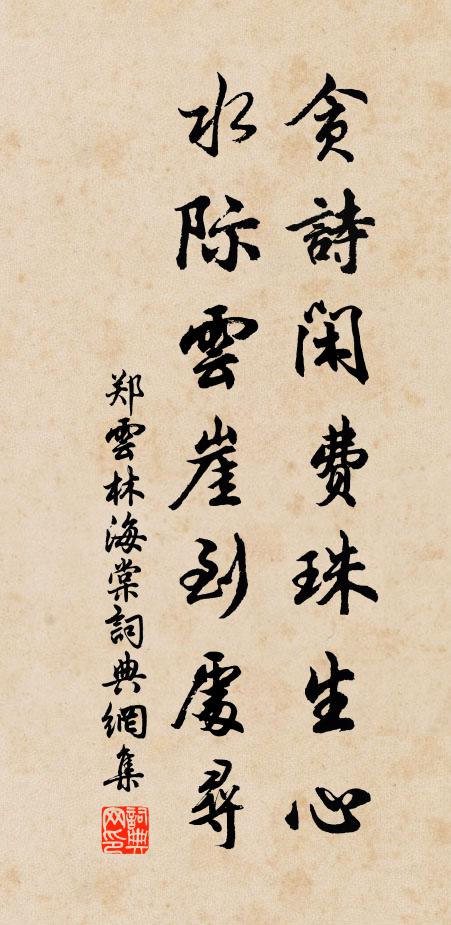 贪詩闲费珠生心
水际雲崖到處尋
郑雲林海棠詞典網集
詞典网印